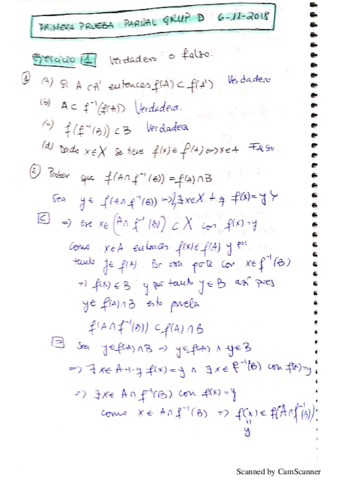 PRIMERA PRUEBA PARCIAL GRUP D 6-11-2018
Ejercicio 1 Verdadero o falso:
① (a) Si A ⊂ A' entonces f(A) ⊂ f(A') Verdadero
(b) A ⊂ f⁻¹(f(A)) Verdadera.
(c) f(f⁻¹(B)) ⊂ B Verdadera
(d) Dado x∈X se tiene f(x) ∈ f(A) ⇔ x∈A Falso
② Probar que f(A∩f⁻¹(B)) = f(A)∩B
Sea y ∈ f(A∩f⁻¹(B)) ⇒ ∃x∈X t.q f(x)=y
⊂ ⇒ ese x∈(A∩f⁻¹(B)) ⊂ X con f(x)=y
como x∈A entonces f(x)∈f(A) y por
tanto y∈f(A). Por otra parte con x∈f⁻¹(B)
⇒ f(x)∈B y por tanto y∈B así pues
y∈f(A)∩B esto prueba
f(A∩f⁻¹(B)) ⊂ f(A)∩B
⊃ Sea y∈f(A)∩B ⇒ y∈f(A) ∧ y∈B
⇒ ∃x∈A t.q f(x)=y ∧ ∃x∈f⁻¹(B) con f(x)=y
⇒ ∃x∈A∩f⁻¹(B) con f(x)=y
como x∈A∩f⁻¹(B) ⇒ f(x)∈f(A∩f⁻¹(B))
y
Scanned by CamScanner